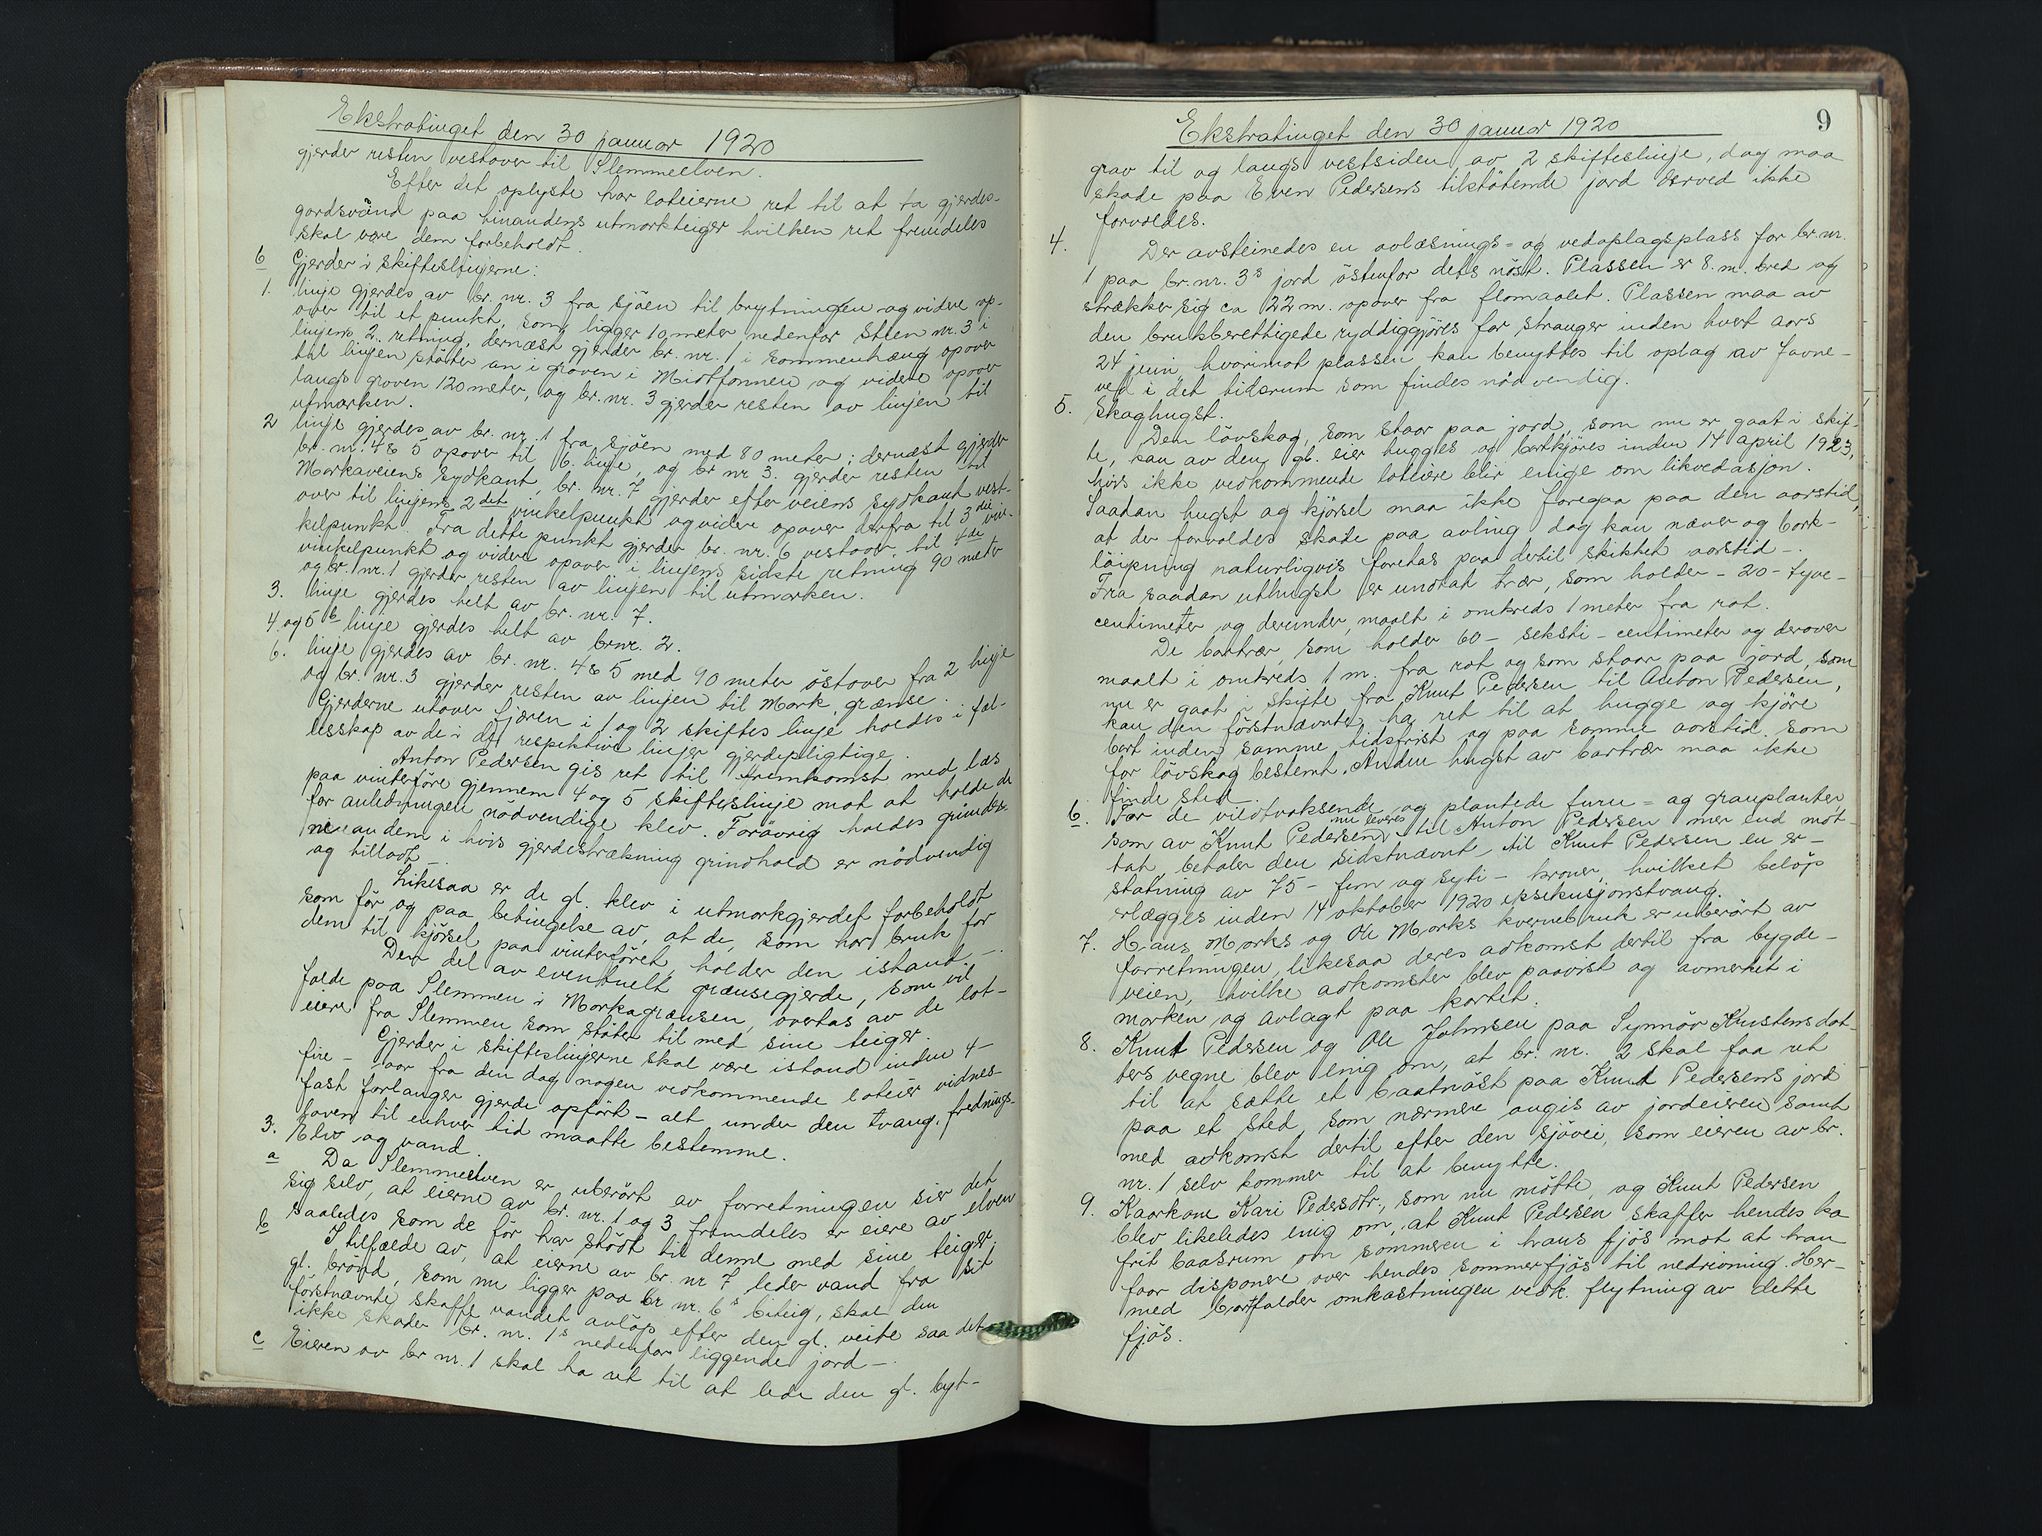 Ekstratinget den 30 januar 1920
gjerder resten vestover til Slemmeelven.
Efter det oplyste har loteierne ret til at ta gjerdes-
gardsvånd paa hinandens utmarkteiger hvilken ret fremdeles
skal være dem forbeholdt.
6 Gjerder i skifteslinjerne:
1. linje gjerdes av br. nr. 3 fra sjöen til brytningen og videre op-
over til et punkt, som ligger 10 meter nedenfor Steen nr. 3 i
linjens 2. retning, dernæst gjerder br. nr. 1 i sammenhæng opover
til linjen stöter an i graven i Midtfonnen og videre opover
langs graven 120 meter, og br. nr. 3 gjerder resten av linjen til
utmarken.
2 linje gjerdes av br. nr. 1 fra sjöen med 80 meter; dernæst gjerder
br. nr. 4 & 5 opover til 6. linje, og br nr 3. gjerder resten til
Markaveiens sydkant, br. nr. 7 gjerder efter veiens sydkant vest-
over til linjens 2 det vinkelpunkt og videre opover derfra til 3 die vin-
kelpunkt. Fra dette punkt gjerder br. nr. 6 vestover til 4 de
vinkelpunkt og videre opover i linjens sidste retning 90 meter
og br. nr. 1 gjerder resten av linjen til utmarken.
3. linje gjerdes helt av br. nr. 7.
4. og 5 te linje gjerdes helt av brnr. 2.
6. linje gjerdes av br. nr. 4 & 5 med 90 meter östover fra 2 linje
og br. nr. 3 gjerder resten av linjen til Mark, grænse.
Gjerderne utover fjæren i 1 og 2 skiftes linje holdes i fæl-
lesskap av de i de respektive linjer gjerdepligtige.
Anton Pedersen gis ret til fremkomst med læs
paa vinterföre gjennem 4 og 5 skifteslinje mot at holde de
for anledningen nödvendige klev. Forövrig holdes grinder
av dem i hvis gjerdestrækning grindhold er nödvendig
og tilladt -.
Likesaa er de gl. klev i utmarkgjerdet forbeholdt
som för og paa betingelse av, at de, som har bruk for
dem til kjörsel paa vinterföret, holder den istand -.
Den del av eventuelt grænsegjerde, som vil
falde paa Slemmen i Markagrænsen, overtas av de lot-
eiere fra Slemmen som stöter til med sine teiger.
Gjerder i skifteslinjerne skal være istand inden 4 -
fire - aar fra den dag nogen vedkommende loteier vidnes-
fast forlanger gjerde opfört - alt under den tvang, frednings-
loven til enhver tid maatte bestemme.
3. Elv og vand.
a Da Slemmeelven er uberört av forretningen sier det
sig selv, at eierne av br. nr. 1 og 3 fremdeles er eiere av elven
saaledes som de för har stödt til denne med sine teiger.
b I tilfælde av, at eierne av br. nr 7 leder vand fra sit
gl. brönd, som nu ligger paa br nr. 6 s beteig, skal den
förstnævnte skaffe vandet avlöp efter den gl. veite saa det
ikke skader br. nr. 1 s nedenfor liggende jord -.
c Eieren av br nr. 1 skal ha ret til at lede den gl. byt-
Ekstratinget den 30 januar 1920
9
grav til og langs vestsiden av 2 skifteslinje, dog maa
skade paa Even Pedersens tilstötende jord derved ikke
forvoldes.
4. Der avsteinedes en avlæsnings- og vedoplagsplass for br. nr.
1 paa br. nr. 3 s jord östenfor dets nöst. Plassen er 8. m. bred og
strækker sig ca 22 m. opover fra flomaalet. Plassen maa av
den bruksberettigede ryddiggjöres for stranger inden hvert aars
24 juni, hvorimot plassen kan benyttes til oplag av favne-
ved i det tidsrum som findes nödvendig.
5. Skoghugst.
Den lövskog, som staar paa jord, som nu er gaat i skif-
te, kan av den gl. eier hugges og bortkjöres inden 14 april 1923,
hvis ikke vedkommende loteiere blir enige om likvidasjon.
Saadan hugst og kjörsel maa ikke foregaa paa den aarstid,
at der forvoldes skade paa avling dog kan næver og bork-
löipning naturligvis foretas paa dertil skikket aarstid -.
Fra saadan uthugst er undtat trær, som holder - 20 - tyve -
centimeter og derunder, maalt i omkreds 1 meter fra rot.
De bartrær, som holder 60 - seksti - centimeter og derover
maalt i omkreds 1 m. fra rot og som staar paa jord, som
nu er gaat i skifte fra Knut Pedersen til Anton Pedersen,
kan den förstnævnte ha ret til at hugge og kjöre
bort inden samme tidsfrist og paa samme aarstid som
for lövskog bestemt. Anden hugst av bartrær maa ikke
finde sted.
6. For de vildtvoksende og plantede furu- og granplanter,
som av Knut Pedersen nu leveres til Anton Pedersen mer end mot-
tat, betaler den sidstnævnte til Knut Pedersen en er-
statning av 75 - fem og sytti - kroner, hvilket belöp
erlægges inden 14 oktober 1920 u/eksekusjonstvang.
7. Hans Marks og Ole Marks kvernebruk er uberört av
forretningen, likesaa deres adkomst dertil fra bygde-
veien, hvilke adkomster blev paavist og avmerket i
marken og avlagt paa kartet.
8. Knut Pedersen og Ole Johnsen paa Synnöv Knutens dat-
ters vegne blev enig om, at br. nr. 2 skal faa ret
til at sætte et baatnöst paa Knut Pedersens jord
paa et sted, som nærmere angis av jordeieren samt
med adkomst dertil efter den sjövei, som eieren av br.
nr. 1 selv kommer til at benytte.
9. Kaarkone Kari Pedersdtr., som nu mötte, og Knut Pedersen
blev likeledes enig om, at Knut Pedersen skaffer hendes ko
frit baasrum om sommeren i hans fjös mot at han
faar disponere over hendes sommerfjös til nedrivning. Her-
med bortfalder omkastningen vedk. flytning av dette
fjös.